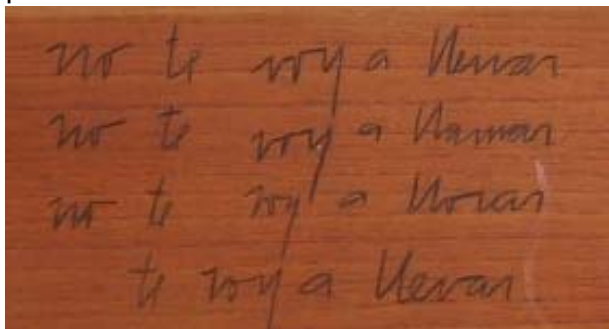 no te voy a llenar
no te voy a llamar
no te voy a llorar
te voy a llevar